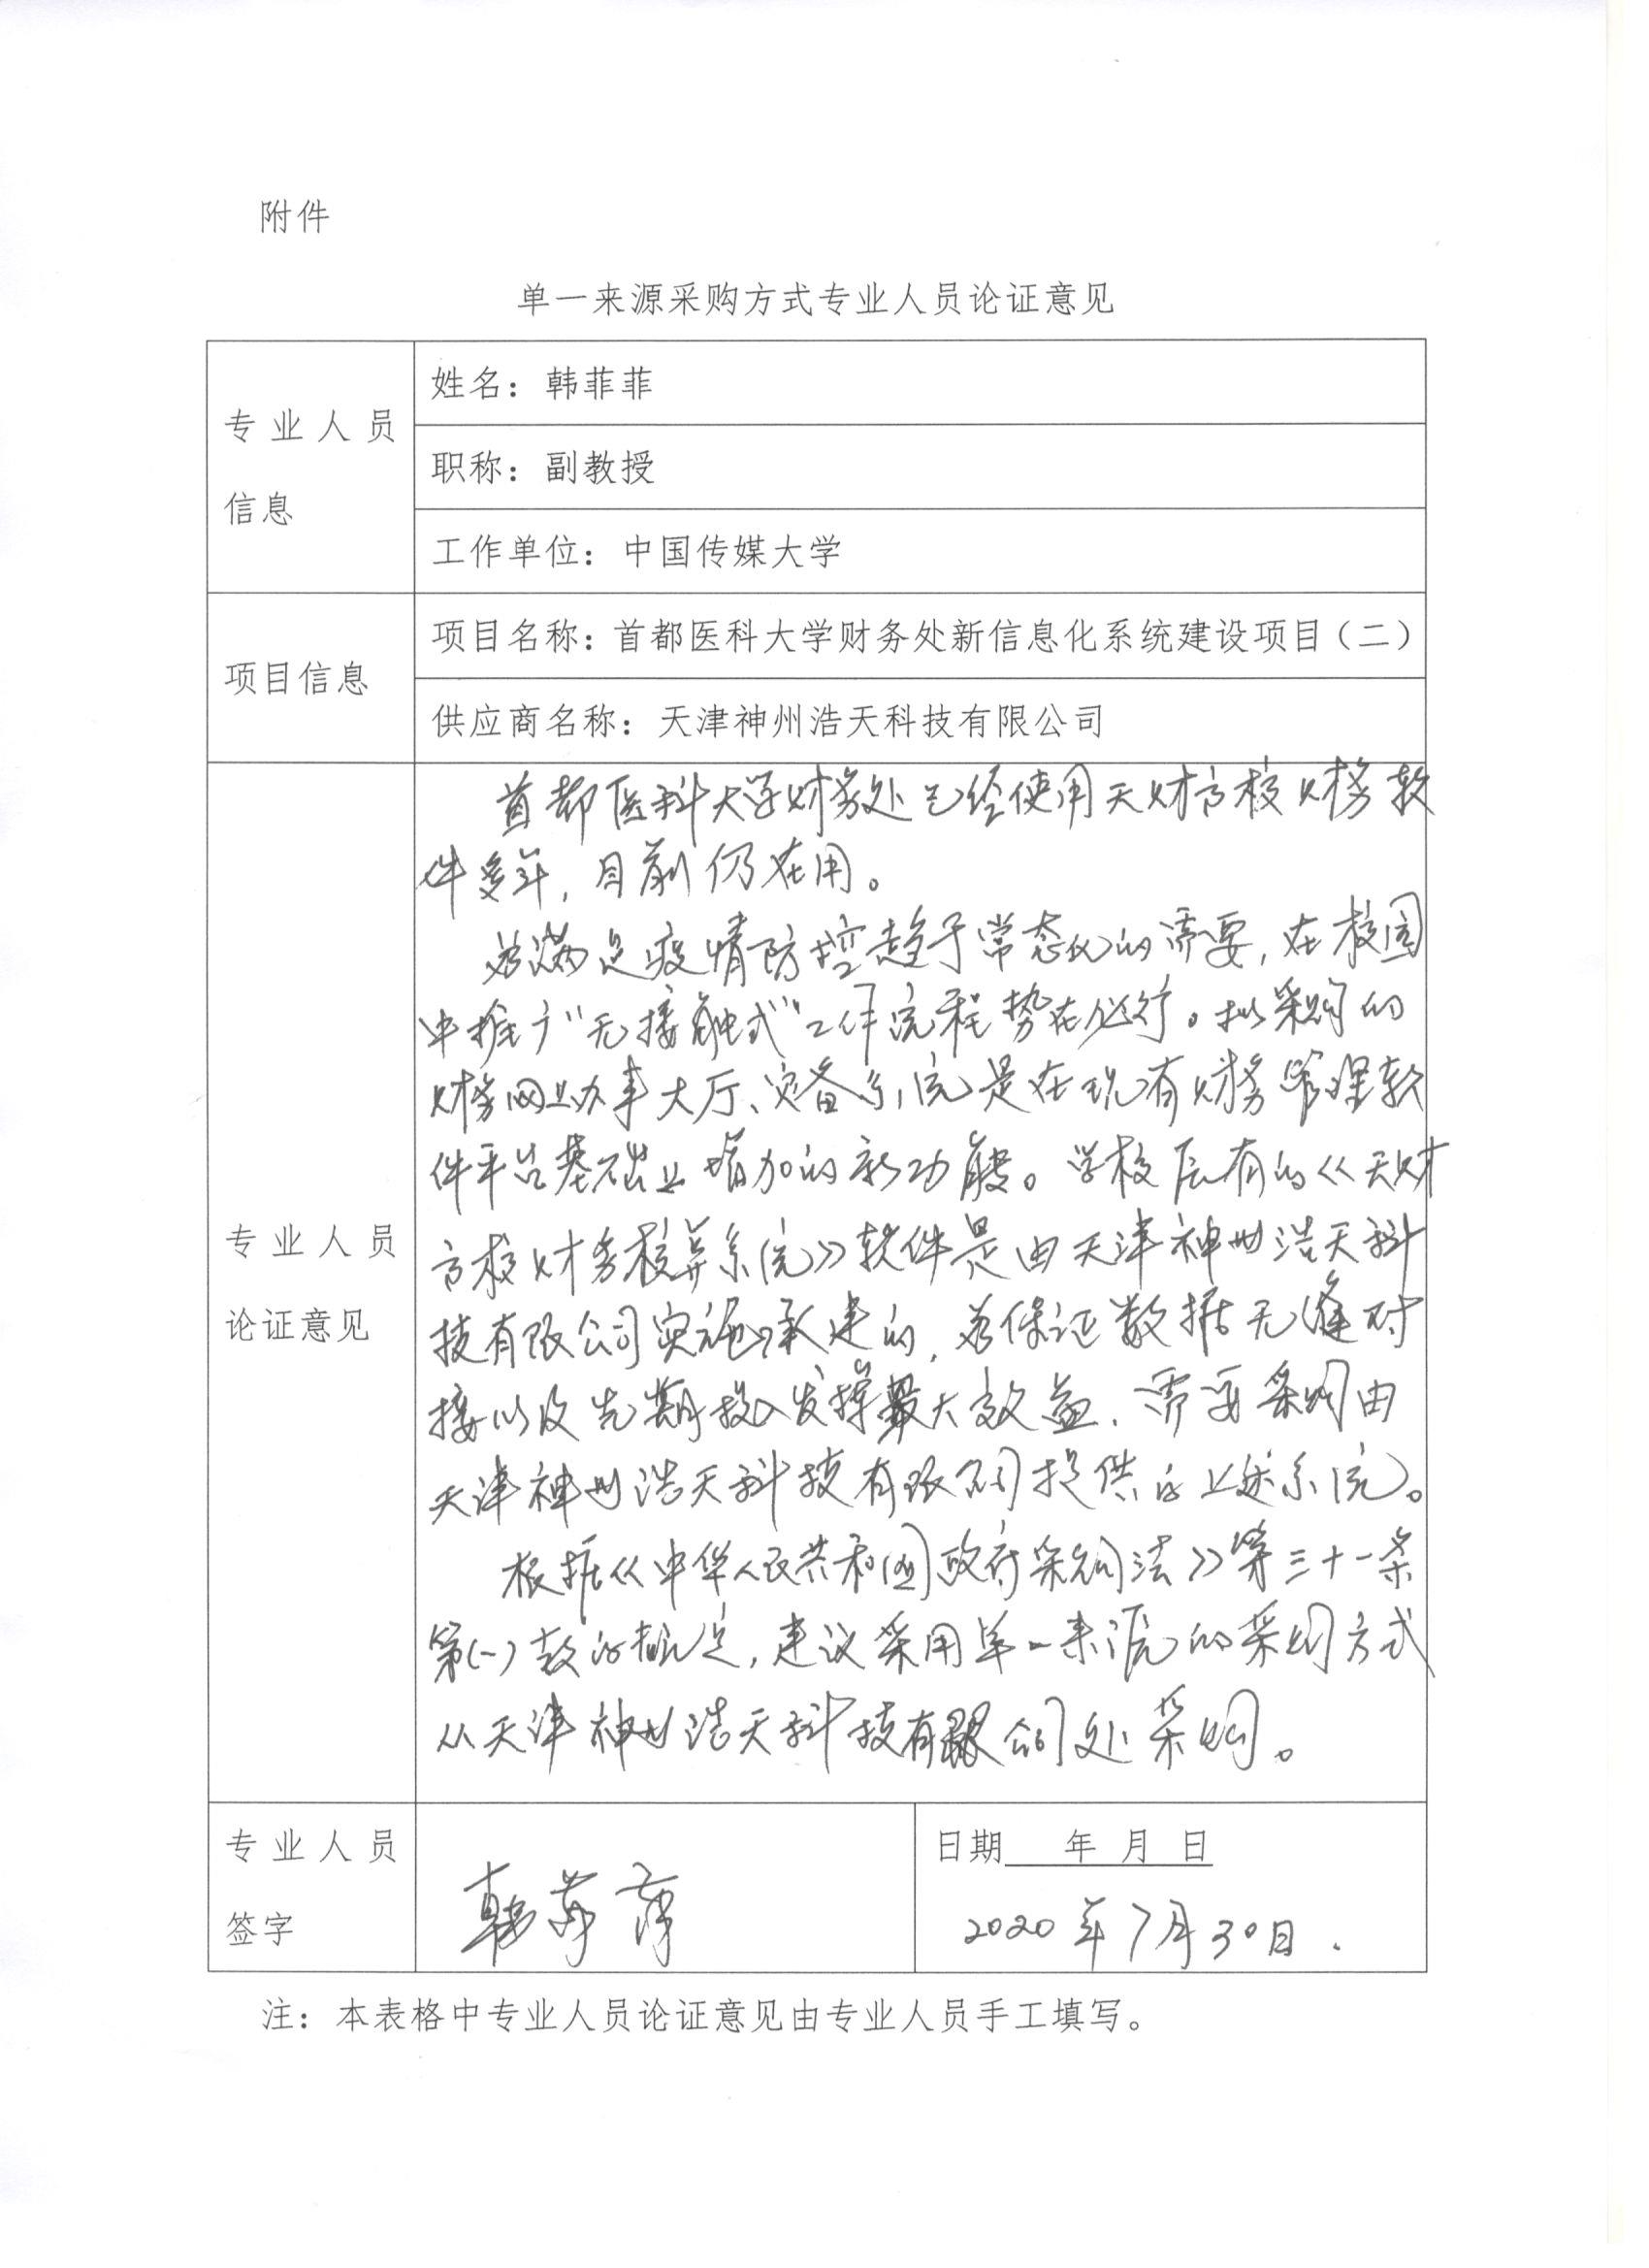 附件
单一来源采购方式专业人员论证意见
专业人员
信息
姓名：韩菲菲
职称：副教授
工作单位：中国传媒大学
项目信息
项目名称：首都医科大学财务处新信息化系统建设项目（二）
供应商名称：天津神州浩天科技有限公司
专业人员
论证意见
首都医科大学财务处已经使用天财高校财务软
件多年，目前仍在用。
为满足疫情防控趋于常态化的需要，在校园
中推广“无接触式”工作流程势在必行。拟采购的
财务网上办事大厅、灾备系统是在现有财务管理软
件平台基础上增加的新功能。学校原有的《天财
高校财务核算系统》软件是由天津神州浩天科
技有限公司实施承建的，为保证数据无缝对
接以及先期投入发挥最大效益，需要采购由
天津神州浩天科技有限公司提供的上述系统。
根据《中华人民共和国政府采购法》第三十一条
第(一)款的规定，建议采用单一来源的采购方式
从天津神州浩天科技有限公司处采购。
专业人员
签字
韩菲菲
日期 年 月 日
2020年7月30日.
注：本表格中专业人员论证意见由专业人员手工填写。